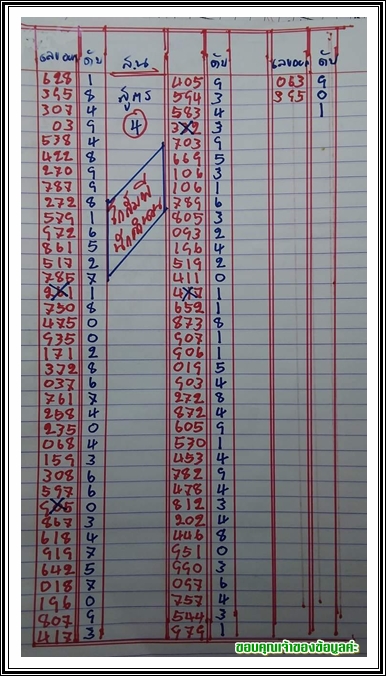 เลขออก ดับ
628 1
395 8
307 4
03 9
538 4
422 8
270 9
787 9
272 8
579 1
972 6
861 5
517 2
785 7
1
730 8
475 0
935 0
171 2
372 8
037 6
761 7
258 4
235 0
068 4
159 3
308 6
597 6
0
867 3
618 4
919 7
642 5
018 7
196 0
807 9
417 3
ส.น
สูตร
4
ดับ
405 9
594 3
583 4
3
703 9
669 5
106 3
106 1
789 6
805 3
093 2
196 4
519 2
411 0
1
652 1
873 8
907 1
906 1
019 5
903 4
272 8
872 4
605 9
530 1
453 4
782 9
478 4
812 3
202 4
446 8
951 0
990 3
097 6
757 4
544 3
979 1
เลขออก ดับ
063 9
395 0
1
ขอบคุณเจ้าของข้อมูลค่ะ